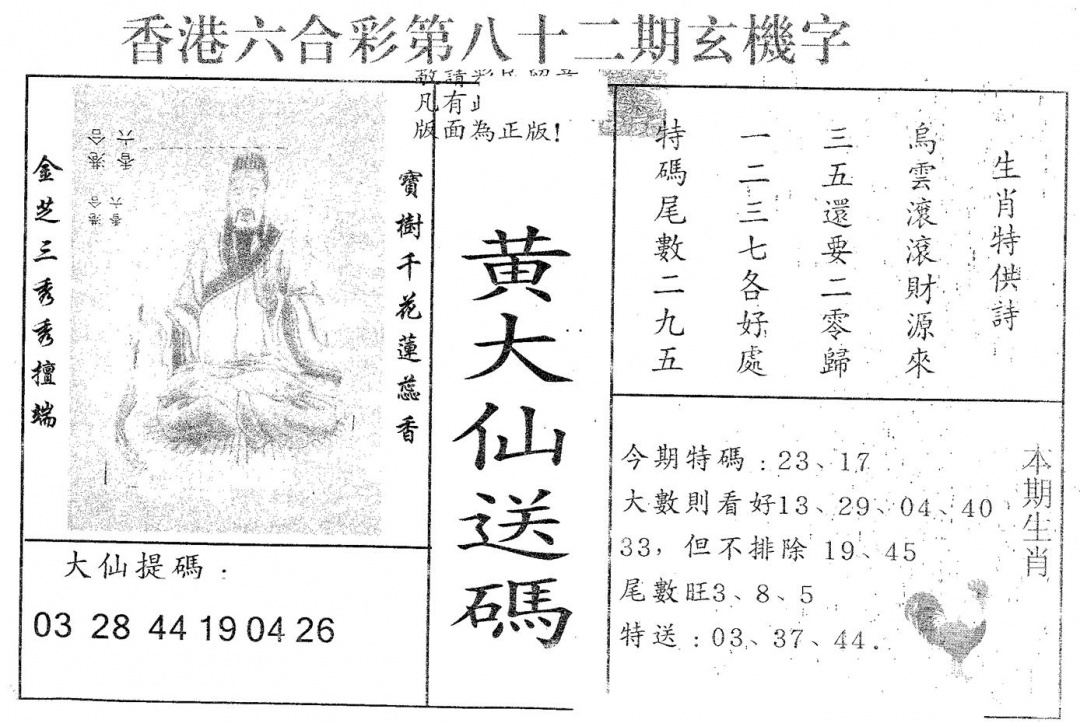 香港六合彩第八十二期玄機字
凡有
版面為正版!
金芝三秀秀擅端
香六
港合
香六
港合
寶樹千花蓮蕊香
大仙提碼:
03 28 44 19 04 26
黄大仙送碼
生肖特供詩
烏雲滾滾財源來
三五還要二零歸
一二三七各好處
特碼尾數二九五
今期特碼:23、17
大數則看好13、29、04、40
33,但不排除 19、45
尾數旺3、8、5
特送:03、37、44.
本期生肖